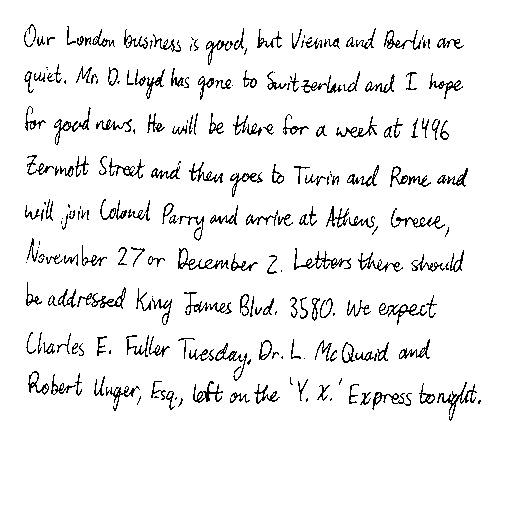 Our London business is good, but Vienna and Berlin are
quiet. Mr. D. Lloyd has gone to Switzerland and I hope
for good news. He will be there for a week at 1496
Zermott Street and then goes to Turin and Rome and
will join Colonel Parry and arrive at Athens, Greece,
November 27 or December 2. Letters there should
be addressed King James Blvd. 3580. We expect
Charles E. Fuller Tuesday. Dr. L. McQuaid and
Robert Unger, Esq., left on the 'Y. X.' Express tonight.